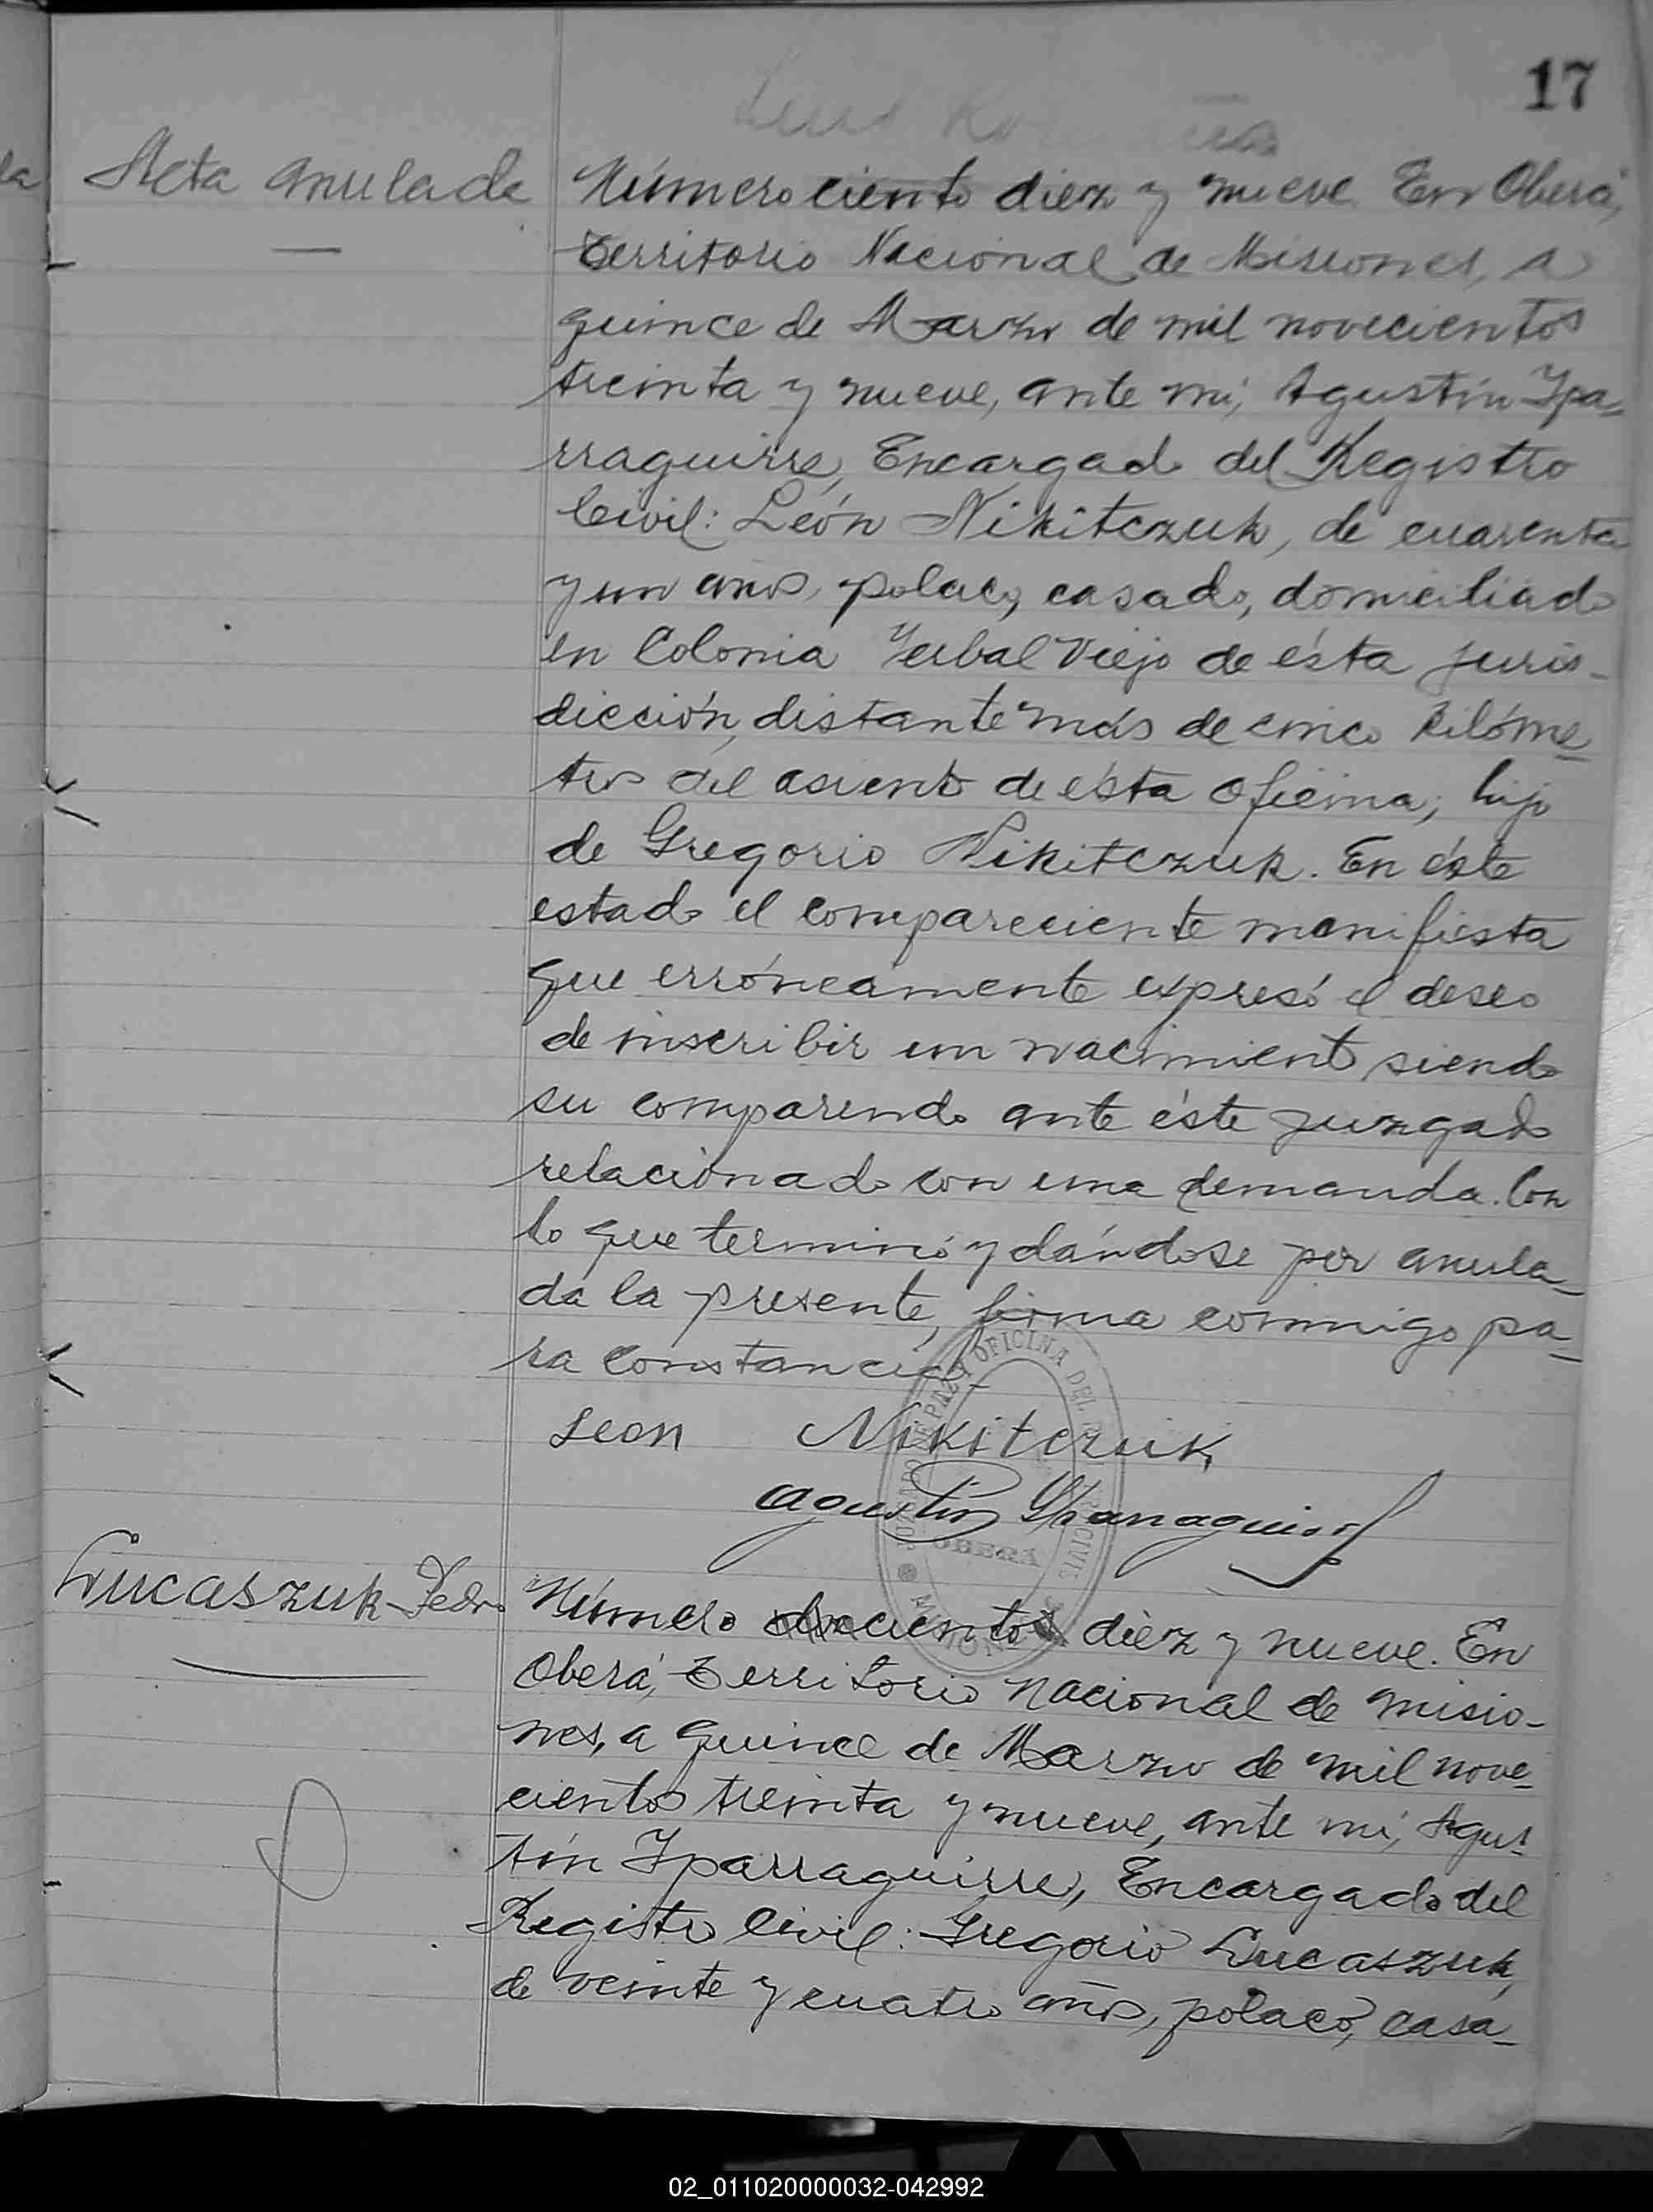 17
Acta anulada
Número ciento diez y nueve. En Oberá,
Territorio Nacional de Misiones, a
quince de Marzo de mil novecientos
treinta y nueve, ante mí, Agustín Ipa-
rraguirre, Encargado del Registro
Civil: León Nikitczuk, de cuarenta
y un años, polaco, casado, domiciliado
en Colonia Yerbal Viejo de ésta juris-
dicción, distante más de cinco kilóme-
tros del asiento de ésta oficina; hijo
de Gregorio Nikitczuk. En éste
estado el compareciente manifiesta
que erróneamente expresó el deseo
de inscribir un nacimiento siendo
su comparendo ante éste juzgado
relacionado con una demanda. Con
lo que terminó y dándose por anula-
da la presente, firma conmigo pa-
ra constancia-
Leon Nikitczuk
Agustín Iparraguirre
OFICINA DEL
OBERÁ
Lucaszuk Pedro
Número doscientos diez y nueve. En
Oberá, Territorio Nacional de Misio-
nes, a quince de Marzo de mil nove-
cientos treinta y nueve, ante mí, Agus-
tín Iparraguirre, Encargado del
Registro Civil: Gregorio Lucaszuk,
de veinte y cuatro años, polaco, casa-
02_011020000032-042992